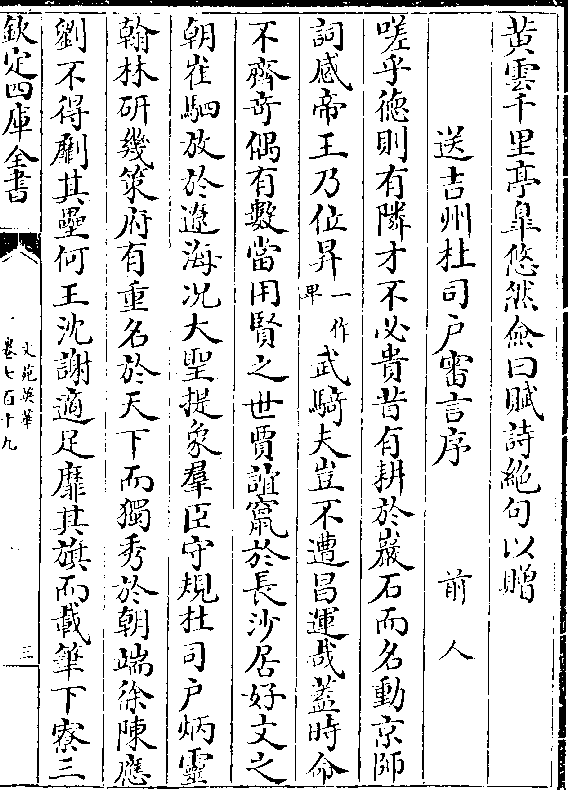 黄雲千里亭臯悠然僉曰賦詩絶句以贈
送吉州杜司户審言序　前人
嗟乎徳則有隣才不必貴昔有耕於巖石而名動京師
詞感帝王乃位昇一作卑武騎夫豈不遭昌運哉葢時命
不齊竒偶有數當用賢之世賈誼竄於長沙居好文之
朝崔駰放於遼海况大聖提象羣臣守規杜司户炳靈
翰林研幾策府有重名於天下而獨秀於朝端徐陳應
劉不得劘其壘何王沈謝適足靡其旗而載筆下寮三
欽定四庫全書
文苑英華
卷七百十九
三